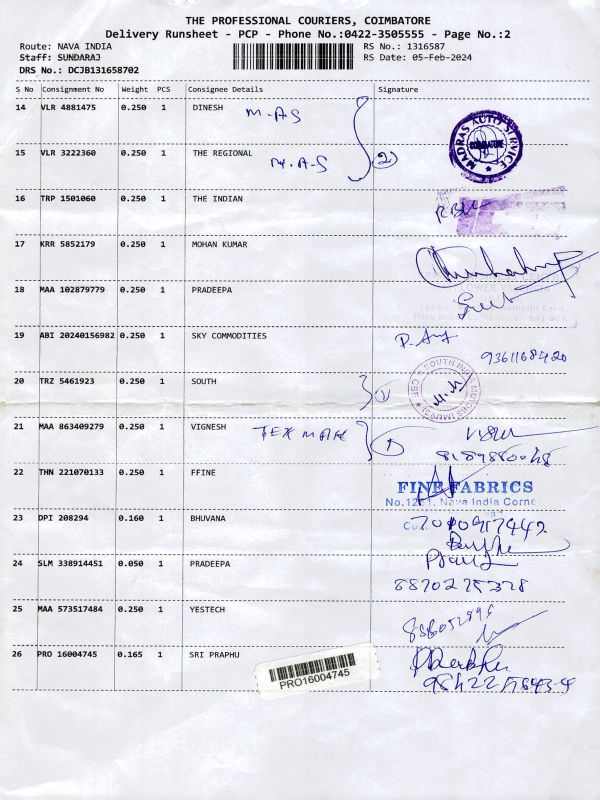 THE PROFESSIONAL COURIERS, COIMBATORE
Delivery Runsheet - PCP - Phone No.:0422-3505555 - Page No.:2
Route: NAVA INDIA RS No.: 1316587
Staff: SUNDARAJ RS Date: 05-Feb-2024
DRS No.: DCJB131658702
S No Consignment No Weight PCS Consignee Details Signature
14 VLR 4881475 0.250 1 DINESH M.A.S
MADRAS AUTO SERVICE COIMBATORE
15 VLR 3222360 0.250 1 THE REGIONAL M.A.S 2
16 TRP 1501060 0.250 1 THE INDIAN
17 KRR 5852179 0.250 1 MOHAN KUMAR
18 MAA 102879779 0.250 1 PRADEEPA
19 ABI 20240156982 0.250 1 SKY COMMODITIES
9361168420
20 TRZ 5461923 0.250 1 SOUTH
SOUTH INDIA
21 MAA 863409279 0.250 1 VIGNESH TEX MARK
22 THN 221070133 0.250 1 FFINE
FINE FABRICS
Nava India Corne
23 DPI 208294 0.160 1 BHUVANA
24 SLM 338914451 0.050 1 PRADEEPA
8870275328
25 MAA 573517484 0.250 1 YESTECH
26 PRO 16004745 0.165 1 SRI PRAPHU
PRO16004745